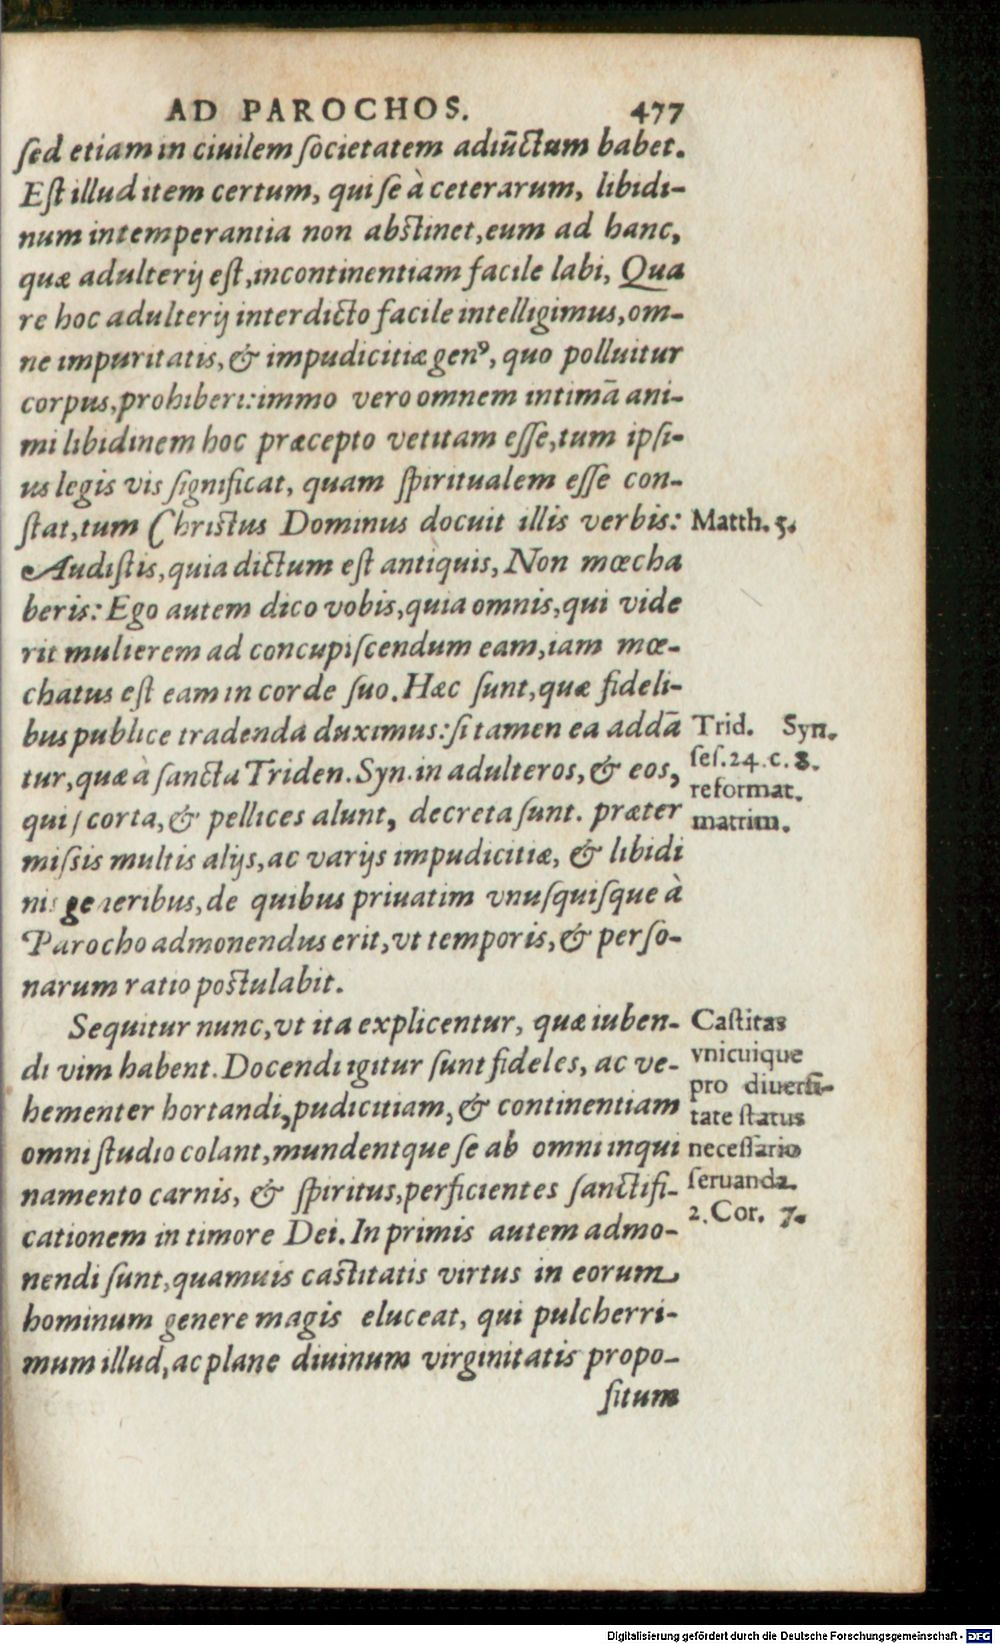 AD PAROCHOS. 477
sed etiam in ciuilem societatem adiũctam habet.
Est illud item certum, qui se à ceterarum, libidi-
num intemperantia non abstinet, eum ad hanc,
quæ adulterij est, incontinentiam facile labi, Qua
re hoc adulterij interdicto facile intelligimus, om-
ne impuritatis, & impudicitiæ genꝰ, quo polluitur
corpus, prohiberi: immo vero omnem intimã ani-
mi libidinem hoc præcepto vetitam esse, tum ipsi-
us legis vis significat, quam spiritualem esse con-
stat, tum Christus Dominus docuit illis verbis:
Matth. 5.
Audistis, quia dictum est antiquis, Non mœcha
beris: Ego autem dico vobis, quia omnis, qui vide
rit mulierem ad concupiscendum eam, iam mœ-
chatus est eam in corde suo. Hæc sunt, quæ fideli-
bus publice tradenda duximus: si tamen ea addã
tur, quæ à sancta Triden. Syn. in adulteros, & eos,
qui scorta, & pellices alunt, decreta sunt. præter
missis multis alijs, ac varijs impudicitiæ, & libidi
nis generibus, de quibus priuatim vnusquisque à
Parocho admonendus erit, vt temporis, & perso-
narum ratio postulabit.
Trid. Syn.
ses. 24. c. 8.
reformat.
matrim.
Sequitur nunc, vt ita explicentur, quæ iuben-
di vim habent. Docendi igitur sunt fideles, ac ve-
hementer hortandi, pudicitiam, & continentiam
omni studio colant, mundentque se ab omni inqui
namento carnis, & spiritus, perficientes sanctifi-
cationem in timore Dei. In primis autem admo-
nendi sunt, quamuis castitatis virtus in eorum
hominum genere magis eluceat, qui pulcherri-
mum illud, ac plane diuinum virginitatis propo-
situm
Castitas
vnicuique
pro diuersi-
tate status
necessario
seruanda.
2. Cor. 7.
Digitalisierung gefördert durch die Deutsche Forschungsgemeinschaft - DFG